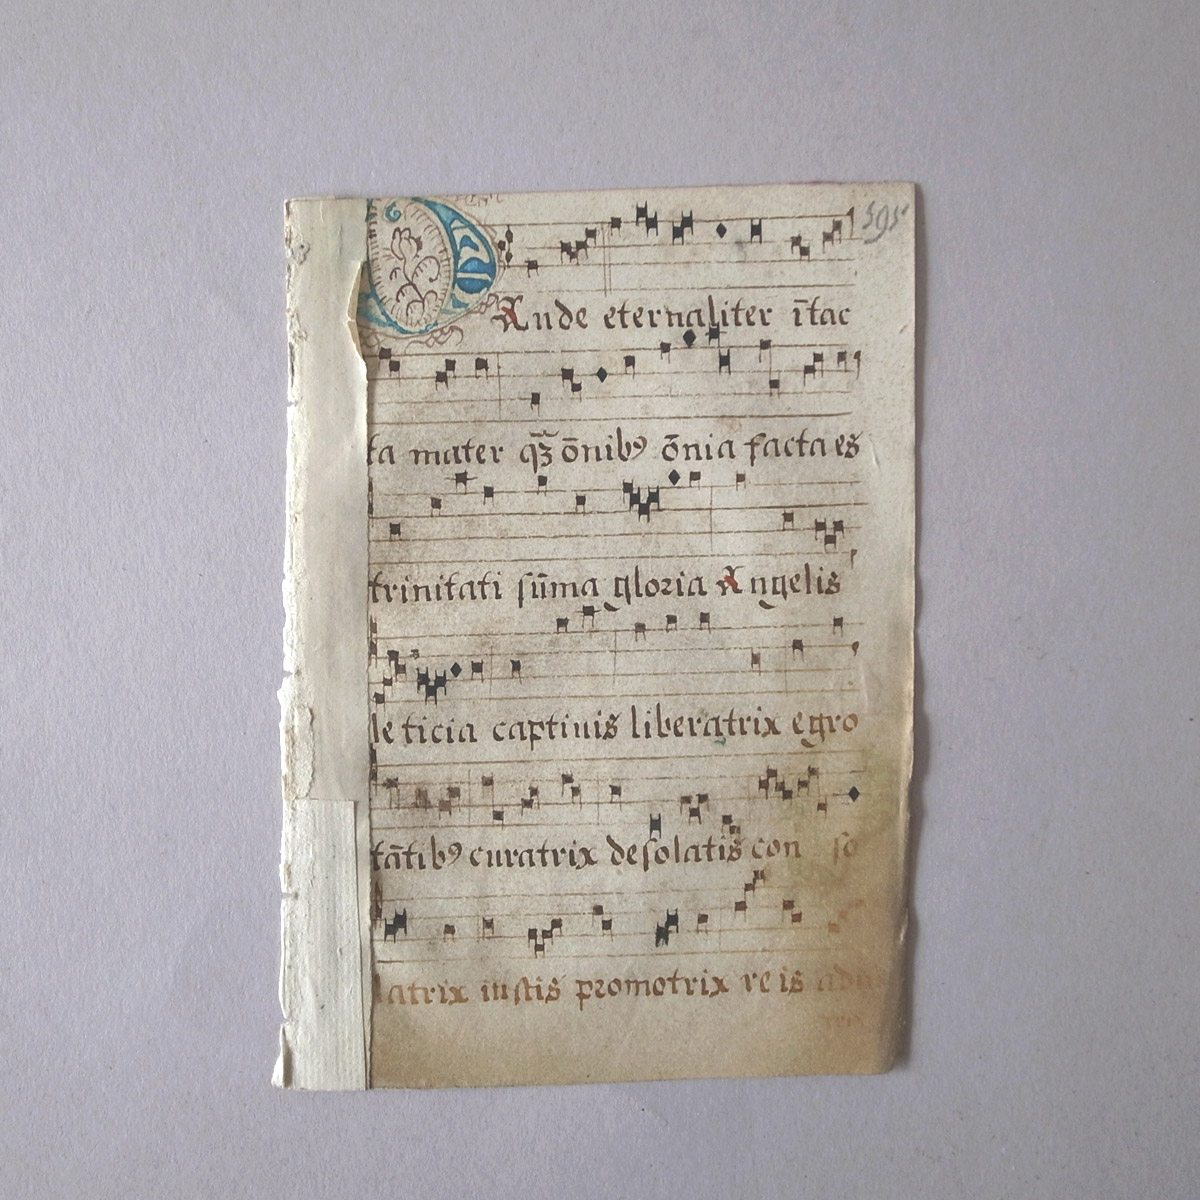 595
GAude eternaliter ītac
ta mater qʒ̄ ōnibꝰ ōnia facta es
trinitati sūma gloria Angelis
leticia captiuis liberatrix egro
tātibꝰ curatrix desolatis con so
latrix iustis promotrix re is